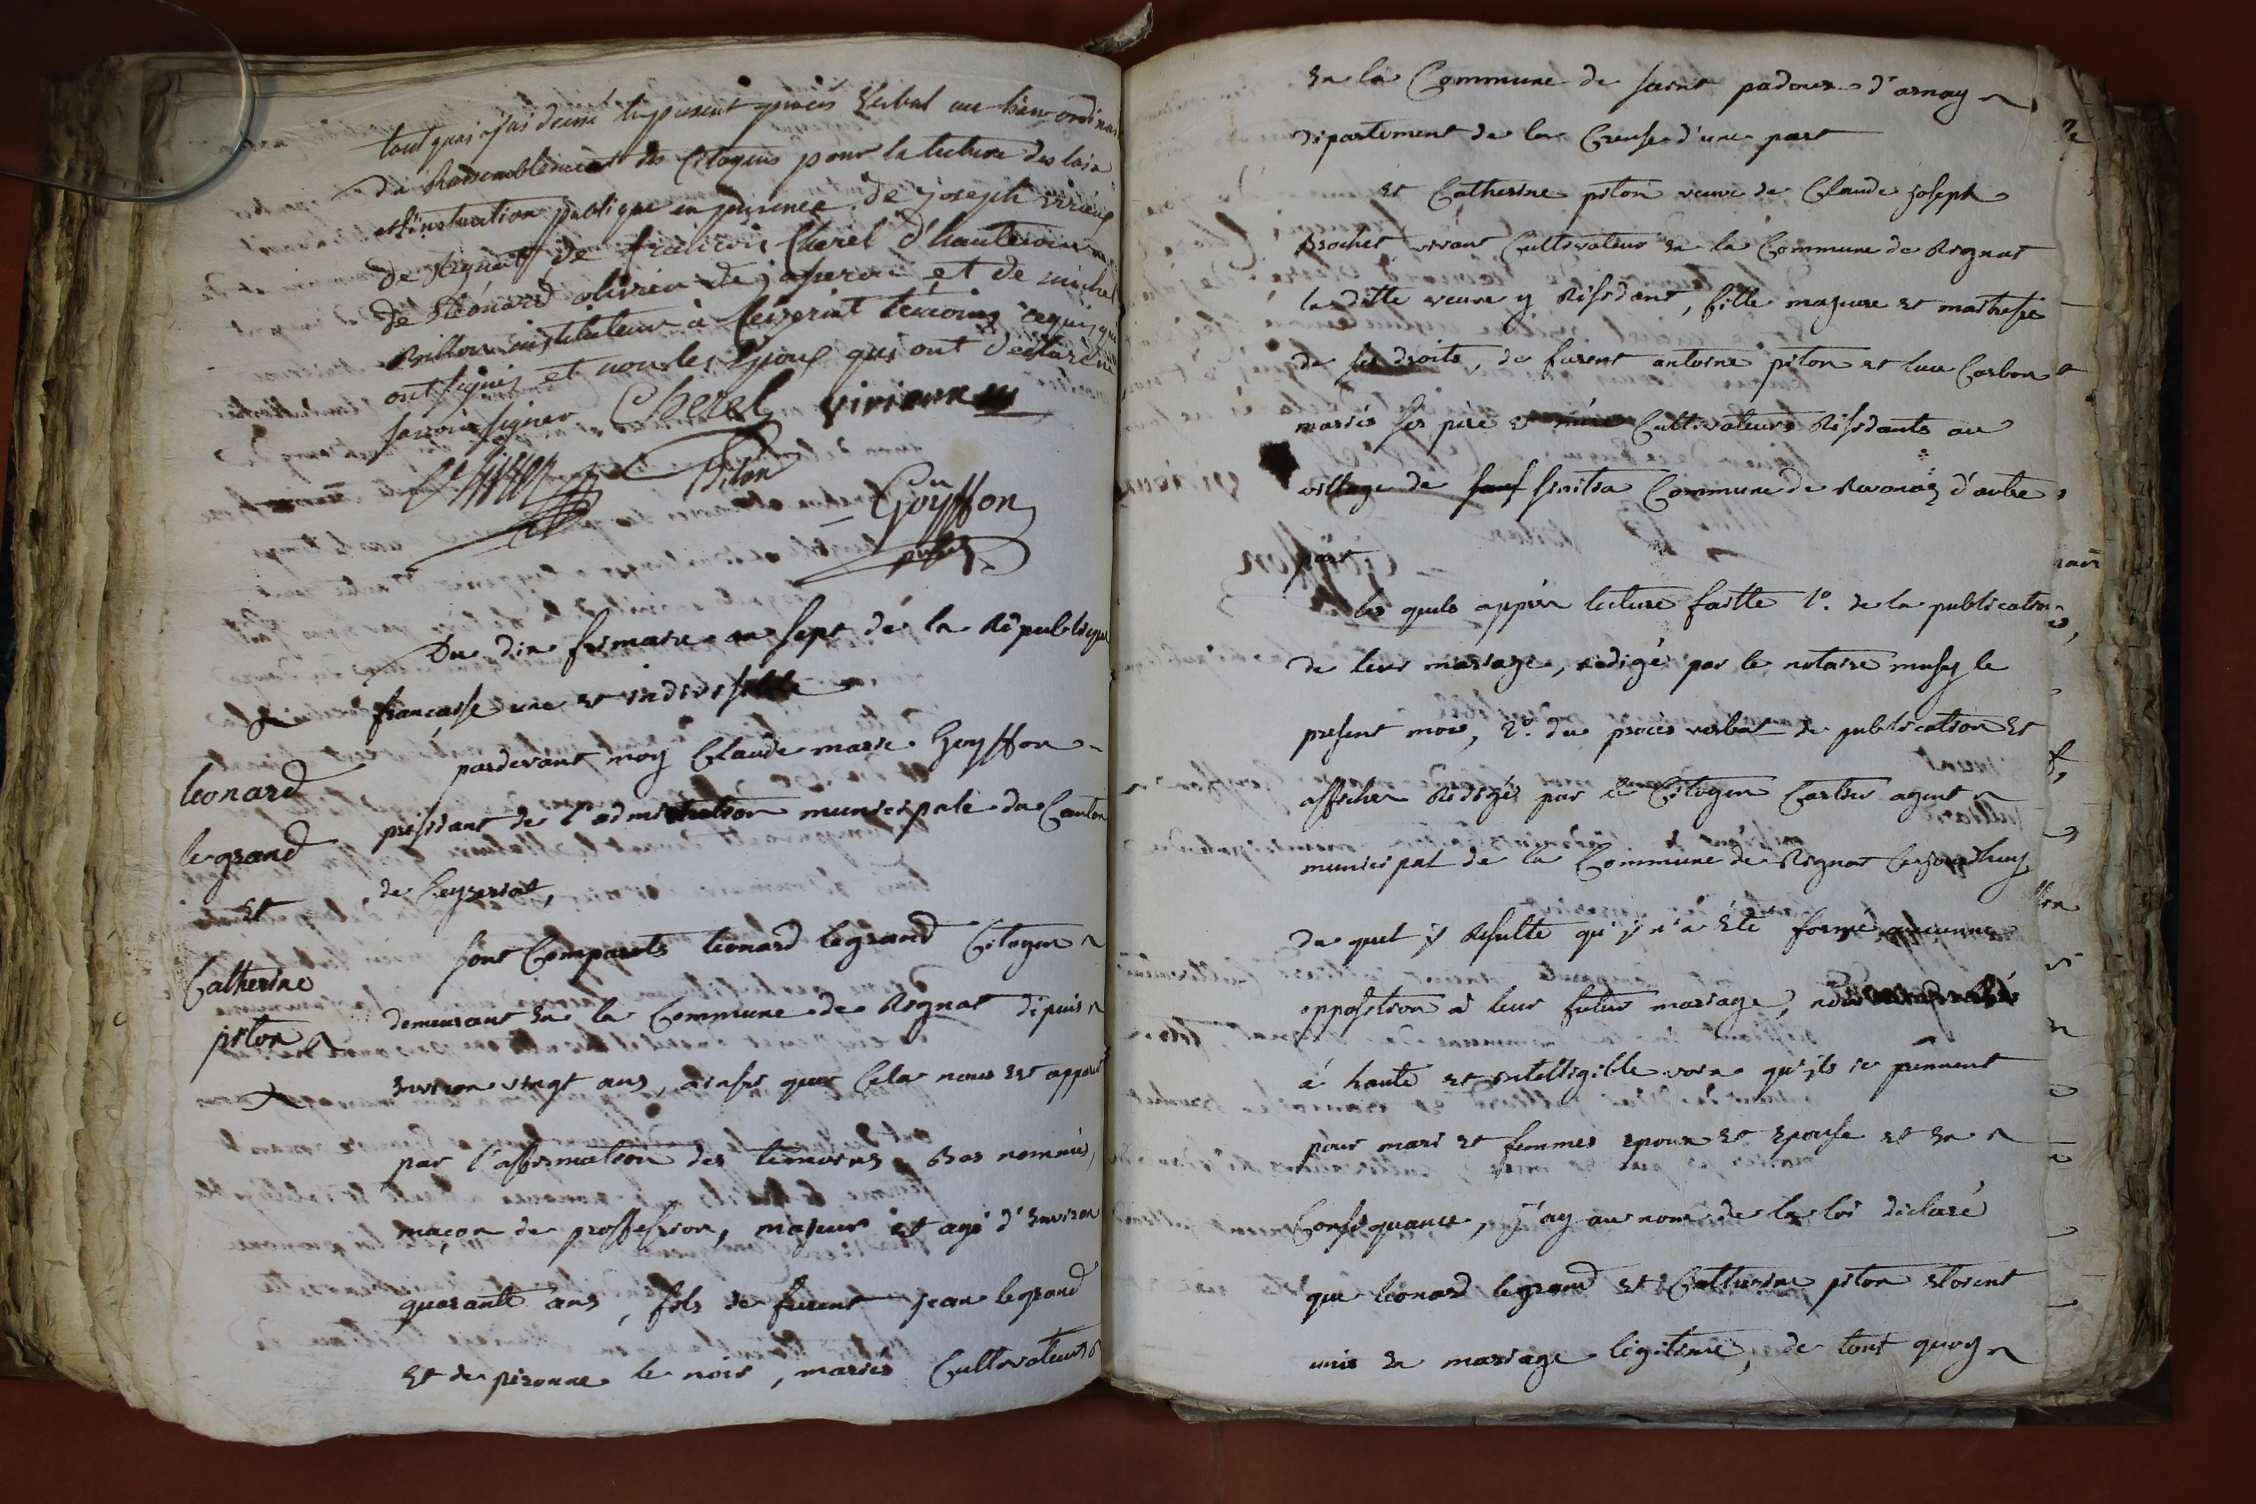 tout quoi j'ai dressé le present procés verbal au lieu ordinaire
du Rassemblement des Citoyens pour la lecture des lois
et l'instruction publique en presence de joseph virieux
de Rignat, de francois Cherel d'hautecour
de Léonard olivier de jasseron et de michel
Billon instituteur à Ceyzeriat témoins requis qui
ont signés et non les Epoux qui ont declaré ne
savoir signer Cherel virieux
Billon
Goÿffon
president
Du dix frimaire an sept dé la Républiqu
françaisse une et indivisible
pardevant moy Claude marie Goyffon
président de l'administration municipale du Canton
de Ceyzeriat,
leonard
legrand
et
Catherine
piton
sont Comparuts leonard legrand Citoyen
demeurant En la Commune de Rignat dépuis
Environ vingt ans, ainsi que Cela nous est apparut
par l'affirmation des temoins Bas nommés,
maçon de proffession, majeur et agé d'Environ
quarante ans, fils de furent jean legrand
Et de péronne le noir, mariés Cultivateurs
En la Commune de saint padoux d'arnay
département de la Creuse d'une part
Et Catherine piton veuve de Claude joseph
Brochet vivant Cultivateur En la Commune de Rignat
la ditte veuve y Résidant, fille majeure et maitresse
de ses droits, de furent antoine piton et luce Carbon
mariés ses père et mère Cultivateurs Résidants au
village de Commune de Revonaz d'autre
part
les quels apprés lecture faitte 1°. de la publication
de leur mariage, rédigé par le notaire le
present mois, 2°. du procès verbal de publication Et
affiches Redigés par le Citoyen Cartier agent
municipal de la Commune de Rignat Cejourdhuy
du quel il Résulte qu'il n'a Eté formé aucunne
oppositton à leur futur mariage,
à haute et intelligible voix qu'ils se prennent
pour mari et femmes Epoux Et Epouse et En
Conséquance, j'ay au nom de la loi déclaré
que leonard legrand et Catherine piton Etoient
unis En mariage légitime, de tout quoy